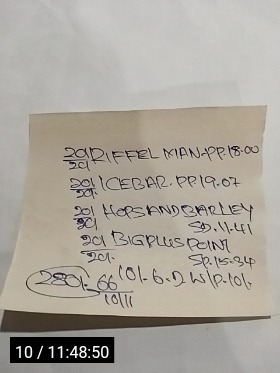 20/ RIFFEL MAN.P.P.18.00
20/
20/ ICEBAR.P.P.19.07
20/.
20/ HOPSANDBARLEY
20/ SD.11.41
20/ BIGPLUSPOINT
20/. SP.15.34
280/. 66 10/.6.D W/P.10/.
10/11
10 / 11:48:50